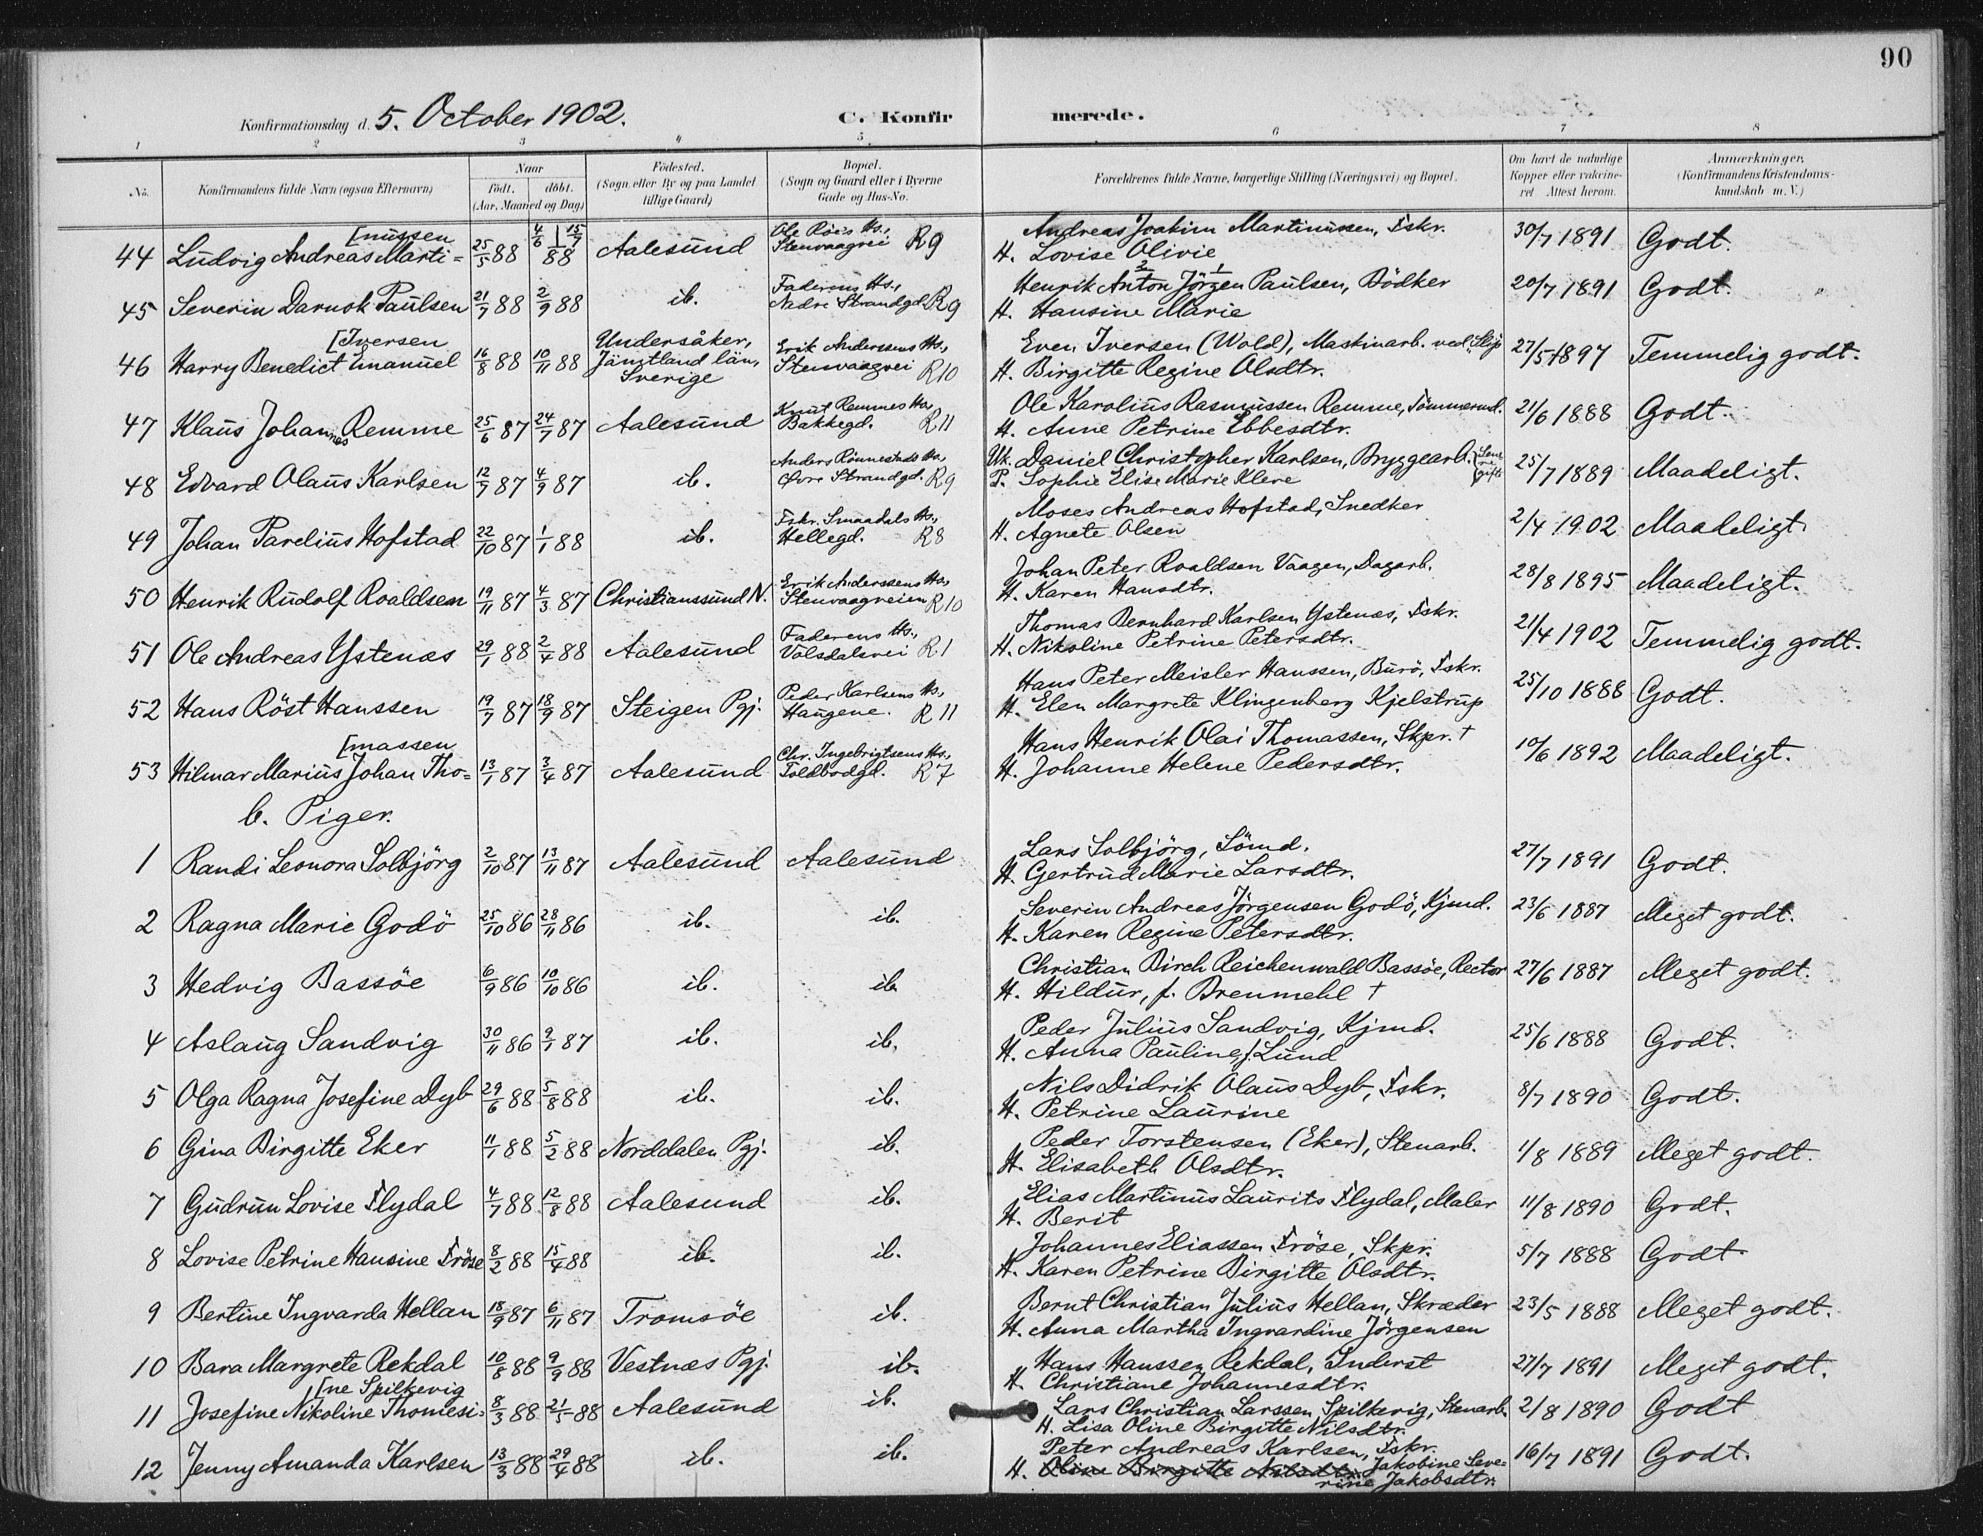 90
Konfirmationsdag d. 5. October 1902. C. Konfirmerede.
1 2 3 4 5 6 7 8
No. Konfirmandens fulde Navn (ogsaa Efternavn) Naar födt. döbt. (Aar, Maaned og Dag) Födested. (Sogn eller By og paa Landet tillige Gaard) Bopæl. (Sogn og Gaard eller i Byerne Gade og Hus-No. Forældrenes fulde Navne, borgerlige Stilling (Næringsvei) og Bopæl. Om havt de naturlige Kopper eller vakcineret Attest herom. Anmærkninger. (Konfirmandens Kristendomskundskab m. V.)
44 Ludvig Andreas Marti= [nussen 25/5 88 4/6 | 15/7 88 Aalesund Ole Röis Hs., Stenvaagvei R9 Andreas Joakim Martinussen, Fskr. H. Lovise Olivie 30/7 1891 Godt.
45 Severin Darnok Paulsen 21/7 88 2/9 88 ib. Faderens Hs., Nedre Strandgd. R9 Henrik Anton 2 Jörgen 1 Paulsen, Bödker H. Hansine Marie 20/7 1891 Godt.
46 Harry Benedict Emanuel [Iversen 16/8 88 10/11 88 Undersåker, Jämtland län, Sverige Erik Anderssens Hs., Stenvaagvei R10 Even Iversen (Wold), Maskinarb. ved Skip H. Birgitte Regine Olsdtr. 27/5 1897 Temmelig godt.
47 Klaus Johannes Remme 25/6 87 24/7 87 Aalesund Knut Remmes Hs., Bakkegd. R11 Ole Karolius Rasmussen Remme, Tömmermd. H. Anne Petrine Ebbesdtr. 21/6 1888 Godt.
48 Edvard Olaus Karlsen 12/7 87 4/9 87 ib. Anders Rönnestads Hs., Øvre Strandgd. R9 Uk. Daniel Christopher Karlsen, Bryggearb. P. Sophie Elise Marie Klere 25/7 1889 Maadeligt.
49 Johan Parelius Hofstad 22/10 87 1/1 88 ib. Fskr. Smaadals Hs., Hellegd. R8 Moses Andreas Hofstad, Snedker H. Agnete Olsen 2/4 1902 Maadeligt.
50 Henrik Rudolf Roaldsen 19/11 87 4/3 87 Christianssund N. Erik Anderssens Hs., Stenvaagveien R10 Johan Peter Roaldsen Vaagen, Dagarb. H. Karen Hansdtr. 28/8 1895 Maadeligt.
51 Ole Andreas Ystenæs 29/1 88 2/4 88 Aalesund Faderens Hs., Volsdalsvei R1 Thomas Bernhard Karlsen Ystenæs, Fskr. H. Nikoline Petrine Petersdtr. 21/4 1902 Temmelig godt.
52 Hans Röst Hanssen 19/7 87 18/9 87 Steigen Pgj. Peder Karlsens Hs., Haugene. R11 Hans Peter Meisler Hanssen, Burö, Fskr. H. Elen Margrete Klingenberg Kjelstrup 25/10 1888 Godt.
53 Hilmar Marius Johan Tho= [massen 13/1 87 3/4 87 Aalesund Chr. Ingebrigtsens Hs., Toldbodgd. R7 Hans Henrik Olai Thomassen, Skpr. † H. Johanne Helene Pedersdtr. 10/6 1892 Maadeligt.
b. Piger.
1 Randi Leonora Solbjörg 2/10 87 13/11 87 Aalesund Aalesund Lars Solbjörg, Sömd. H. Gertrud Marie Larsdtr. 27/7 1891 Godt.
2 Ragna Marie Godö 25/10 86 28/11 86 ib. ib. Severin Andreas Jörgensen Godö, Kjmd. H. Karen Regine Petersdtr. 23/6 1887 Meget godt.
3 Hedvig Bassöe 6/9 86 10/10 86 ib. ib. Christian Birch Reichenwald Bassöe, Rector H. Hildur, f. Brenmehl † 27/6 1887 Meget godt.
4 Aslaug Sandvig 30/11 86 9/1 87 ib. ib. Peder Julius Sandvig, Kjmd. H. Anna Pauline, f. Lund 25/6 1888 Godt.
5 Olga Ragna Josefine Dyb 29/6 88 5/8 88 ib. ib. Nils Didrik Olaus Dyb, Fskr. H. Petrine Laurine 8/7 1890 Godt.
6 Gina Birgitte Eker 11/1 88 5/2 88 Norddalen Pgj. ib. Peder Torstensen (Eker), Stenarb. H. Elisabeth Olsdtr. 1/8 1889 Meget godt.
7 Gudrun Lovise Flydal 4/7 88 12/8 88 Aalesund ib. Elias Martinus Laurits Flydal, Maler H. Berit 11/8 1890 Godt.
8 Lovise Petrine Hansine Fröse 8/2 88 15/4 88 ib. ib. Johannes Eliassen Fröse, Skpr. H. Karen Petrine Birgitte Olsdtr. 5/7 1888 Godt
9 Bertine Ingvarda Hellan 18/9 87 6/11 87 Tromsöe ib. Bernt Christian Julius Hellan, Skræder H. Anna Martha Ingvardine Jörgensen 23/5 1888 Meget godt.
10 Bara Margrete Rekdal 10/8 88 9/9 88 Vestnæs Pgj. ib. Hans Hanssen Rekdal, Inderst H. Christiane Johannesdtr. 27/7 1891 Meget godt.
11 Josefine Nikoline Thomesi= [ne Spilkevig 8/3 88 21/5 88 Aalesund ib. Lars Christian Larssen Spilkevig, Stenarb. H. Lisa Oline Birgitte Nilsdtr. 2/8 1890 Godt
12 Jenny Amanda Karlsen 13/3 88 29/4 88 ib. ib. Peter Andreas Karlsen, Fskr. H. Oline Birgitte Nilsdtr. Jakobine Severine Jakobsdtr. 16/7 1891 Godt.